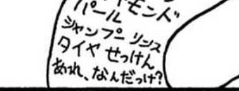 ヤモンド
パール
シャンプー リンス
タイヤ せっけん
あれれ、なんだっけ?